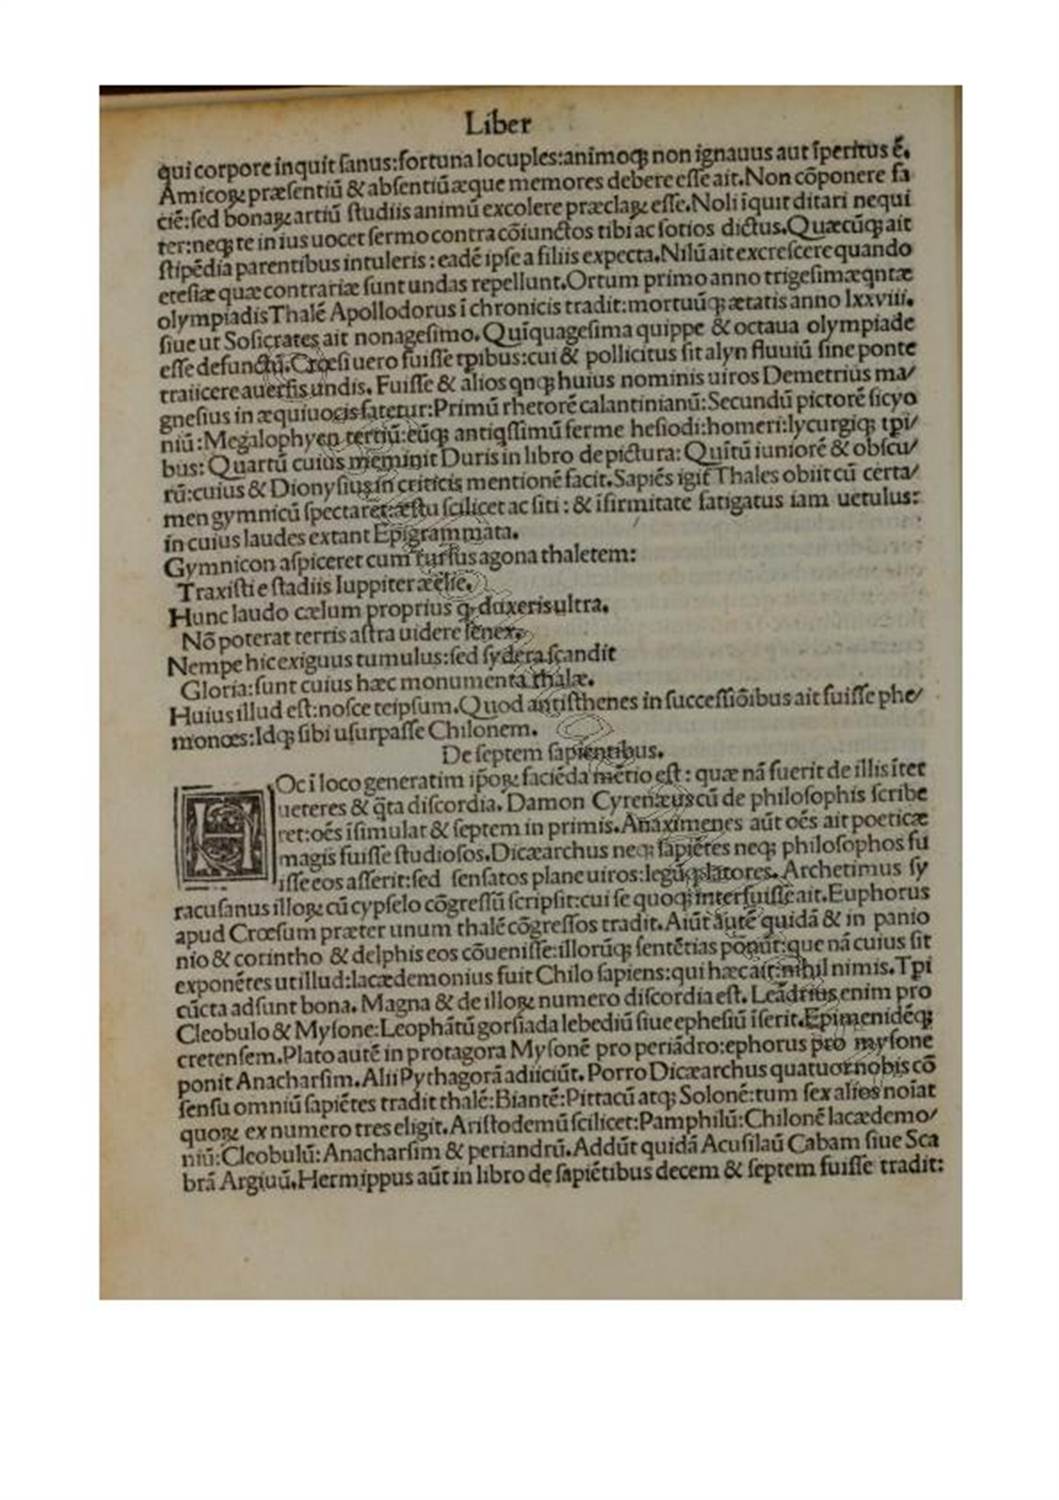 Liber
qui corpore inquit ſanus:fortuna locuples:animoqꝫ non ignauus aut īperitus ē.
Amicoꝝ præſentiū & abſentiū æque memores debere eſſe ait.Non cōponere fa
ciē:ſed bonaꝝ artiū ſtudiis animū excolere præclaꝝ eſſe.Noli īquit ditari nequi
ter:neqꝫ te in ius uocet ſermo contra cōiunctos tibi ac ſotios dictus.Quæcūqꝫ ait
ſtipēdia parentibus intuleris:eadē ipſe a filiis expecta.Nilū ait excreſcere quando
eteſiæ quæ contrariæ ſunt undas repellunt.Ortum primo anno trigeſimæ qntæ
olympiadis Thalē Apollodorus ī chronicis tradit:mortuūqꝫ ætatis anno lxxviii.
ſiue ut Soſicrates ait nonageſimo.Quīquageſima quippe & octaua olympiade
eſſe defunctū.Crœſi uero fuiſſe tpibus:cui & pollicitus ſit alyn fluuiū ſine ponte
traiicere auerſis undis.Fuiſſe & alios qnqꝫ huius nominis uiros Demetrius ma/
gneſius in æquiuocis fatetur:Primū rhetorē calantinianū:Secundū pictorē ſicyo
niū:Megalophyen tertiū:eūqꝫ antiqſſimū ferme heſiodi:homeri:lycurgiqꝫ tpi/
bus:Quartū cuius meminit Duris in libro de pictura:Quītū iuniorē & obſcu/
rū:cuius & Dionyſius in criticis mentionē facit.Sapiēs igit̄ Thales obiit cū certa/
men gymnicū ſpectaret:æſtu ſcilicet ac ſiti:& īfirmitate fatigatus iam uetulus:
in cuius laudes extant Epigrammata.
Gymnicon aſpiceret cum rurſus agona thaletem:
Traxiſti e ſtadiis Iuppiter æelie.
Hunc laudo cælum proprius q duxeris ultra.
Nō poterat terris aſtra uidere ſenex.
Nempe hic exiguus tumulus:ſed ſydera ſcandit
Gloria:ſunt cuius hæc monumenta thalæ.
Huius illud eſt:noſce teipſum.Quod antiſthenes in ſucceſſiōibus ait fuiſſe phe/
monoes:Idqꝫ ſibi uſurpaſſe Chilonem.
De ſeptem ſapientibus.
HOc ī loco generatim ipoꝝ faciēda mētio eſt:quæ nā fuerit de illis ītet
ueteres & q̄ta diſcordia.Damon Cyrenæus cū de philoſophis ſcribe
ret:oēs īſimulat & ſeptem in primis.Anaximenes aūt oēs ait poeticæ
magis fuiſſe ſtudioſos.Dicæarchus neqꝫ ſapiētes neqꝫ philoſophos fu
iſſe eos aſſerit:ſed ſenſatos plane uiros:legūqꝫ latores.Archetimus ſy
racuſanus illoꝝ cū cypſelo cōgreſſū ſcripſit:cui ſe quoqꝫ interfuiſſe ait.Euphorus
apud Crœſum præter unum thalē cōgreſſos tradit.Aiūt autē quidā & in panio
nio & corintho & delphis eos cōueniſſe:illorūqꝫ ſentētias ponūt:que nā cuius ſit
exponētes ut illud:lacædemonius fuit Chilo ſapiens:qui hæc ait:nihil nimis.Tpi
cūcta adſunt bona.Magna & de illoꝝ numero diſcordia eſt.Leādrius enim pro
Cleobulo & Myſone:Leophātū gorſiada lebediū ſiue epheſiū īſerit.Epimenidēqꝫ
cretenſem.Plato autē in protagora Myſonē pro periādro:ephorus pro myſone
ponit Anacharſim.Alii Pythagorā adiiciūt.Porro Dicæarchus quatuor nobis cō
ſenſu omniū ſapiētes tradit thalē:Biantē:Pittacū atqꝫ Solonē:tum ſex alios noīat
quoꝝ ex numero tres eligit.Ariſtodemū ſcilicet:Pamphilū:Chilonē lacædemo/
niū:Cleobulū:Anacharſim & periandrū.Addūt quidā Acuſilaū Cabam ſiue Sca
brā Argiuū.Hermippus aūt in libro de ſapiētibus decem & ſeptem fuiſſe tradit: